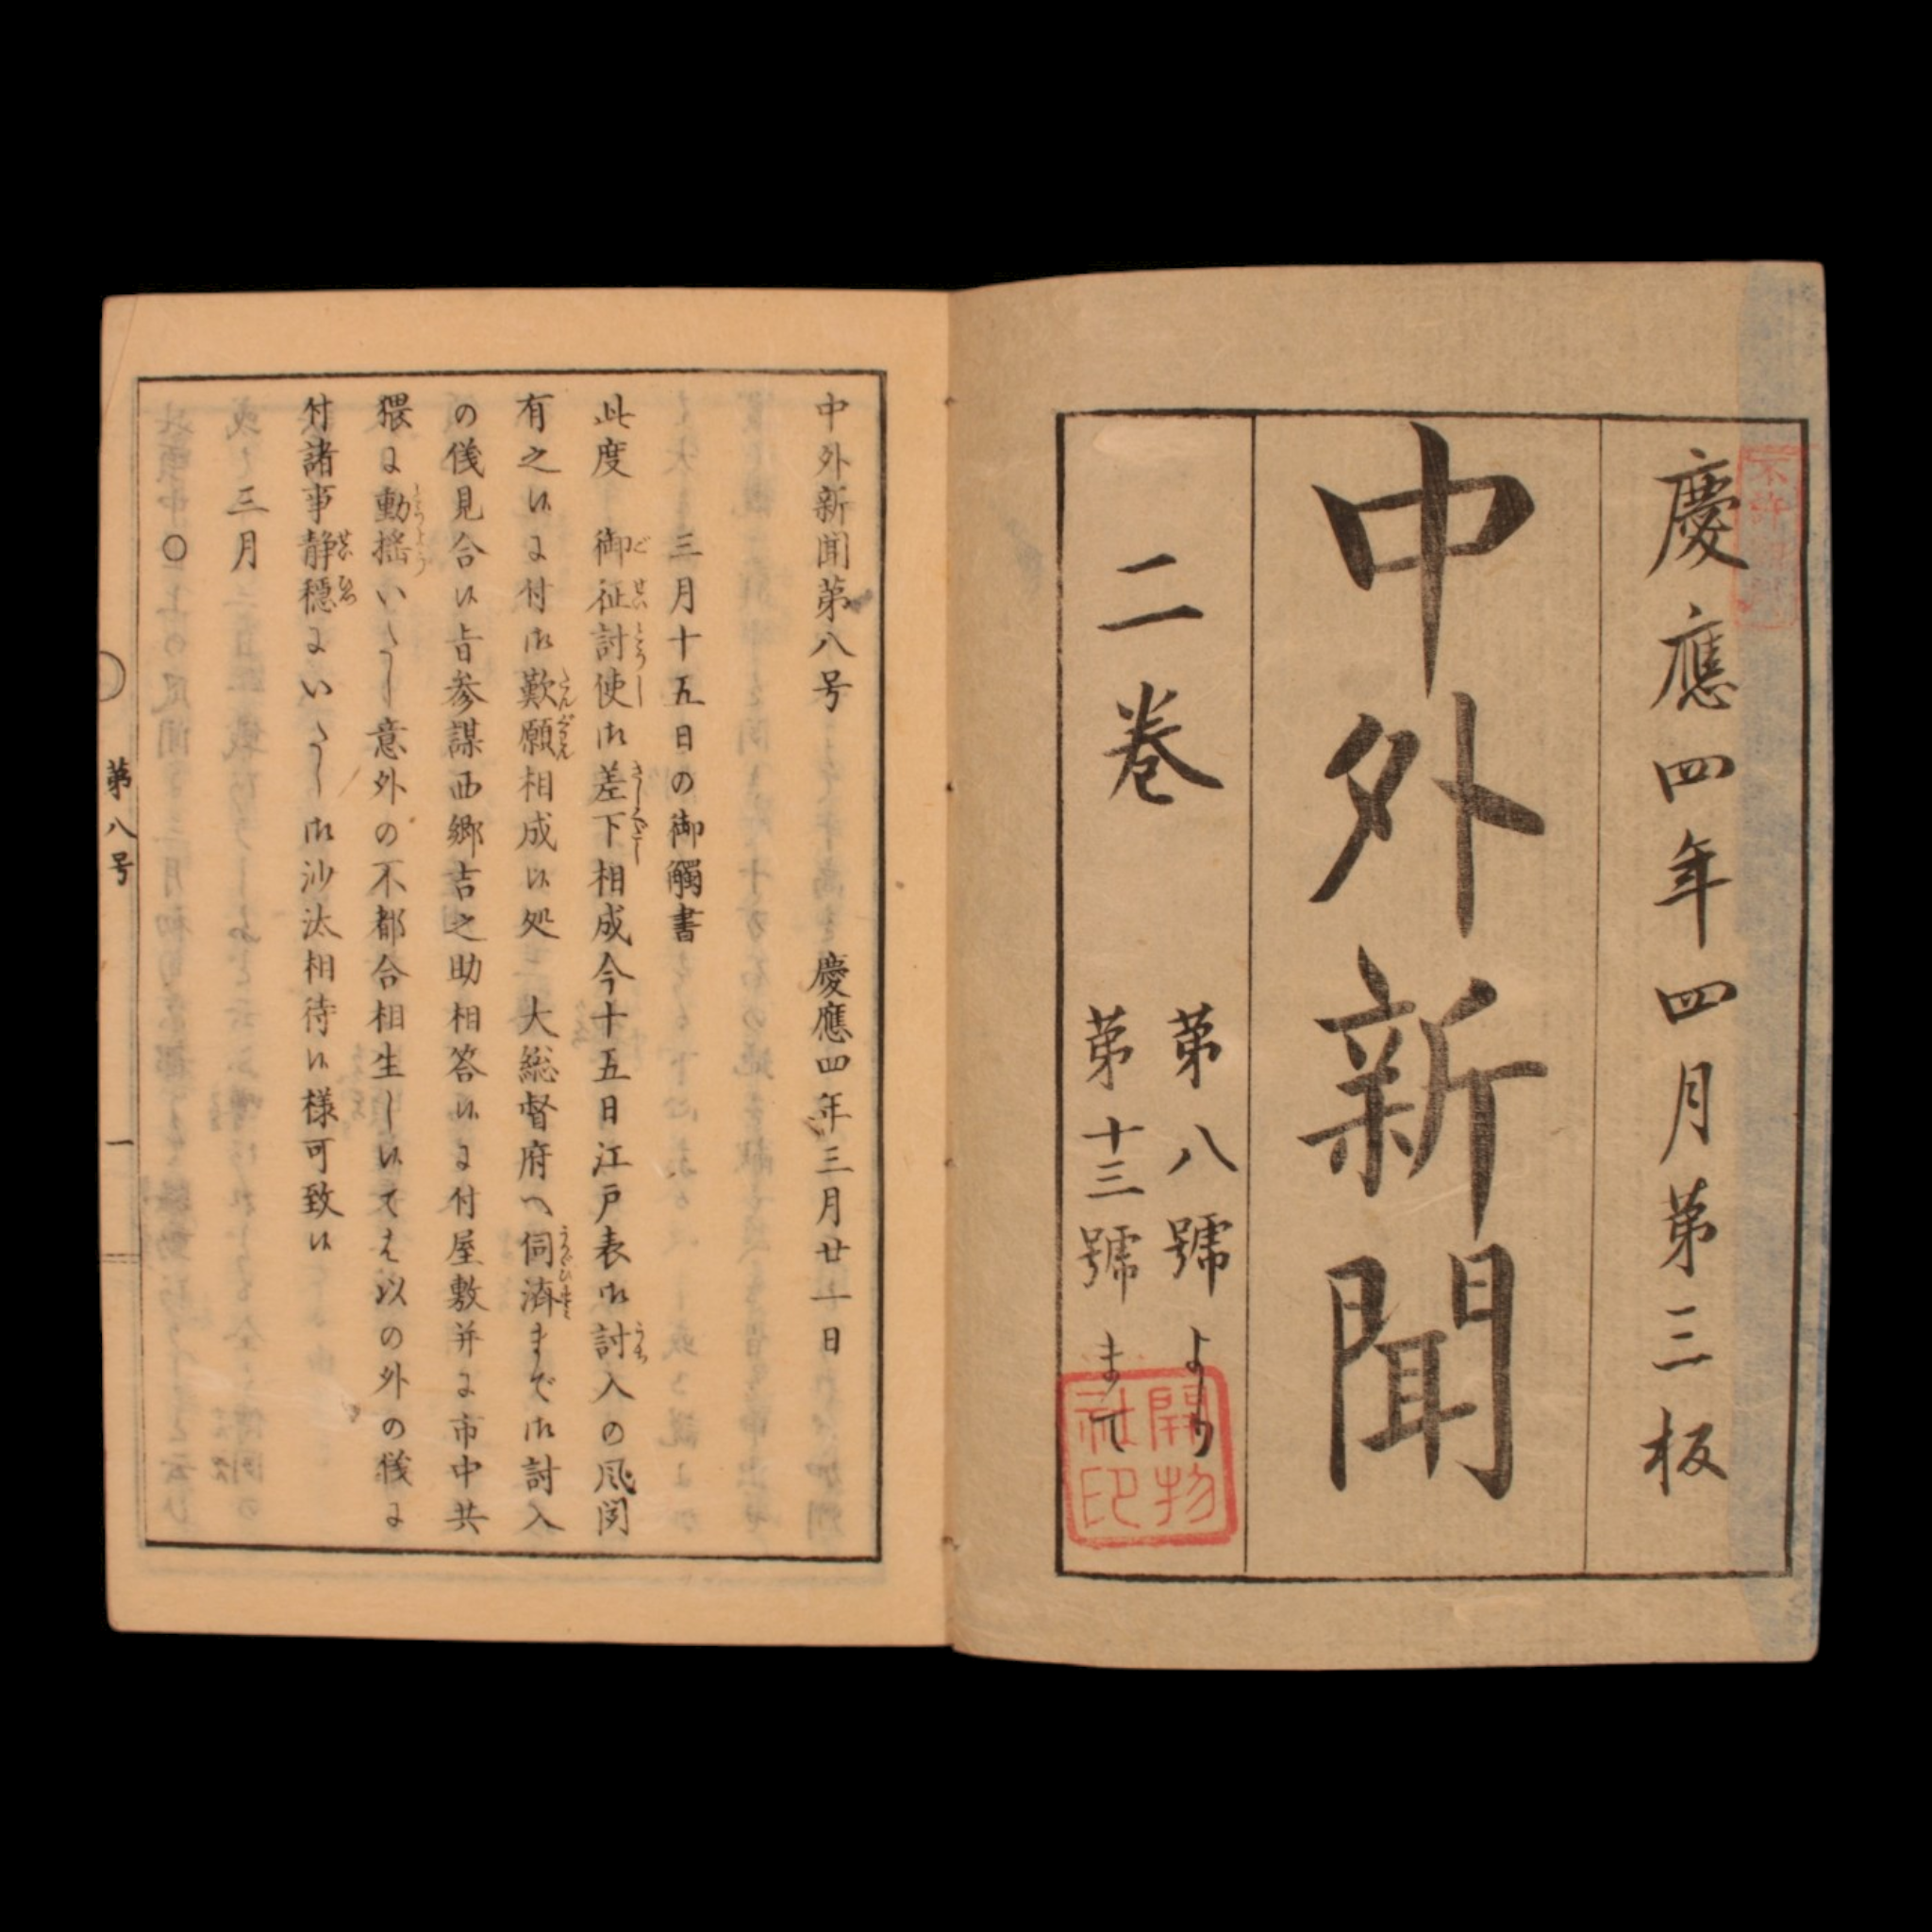 慶應四年四月第三板
中外新聞
二巻
第八號より
第十三號まて
開物
社印
中外新聞第八号　慶應四年三月廿一日
三月十五日の御觸書
此度　御征討使御差下相成今十五日江戸表御討入の風聞
有之候に付御歎願相成候処　大総督府へ伺済まで御討入
の儀見合候旨参謀西郷吉之助相答候に付屋敷并に市中共
猥に動揺いたし意外の不都合相生し候ては以の外の儀に
付諸事静穏にいたし御沙汰相待候様可致候
三月
○
第八号
一